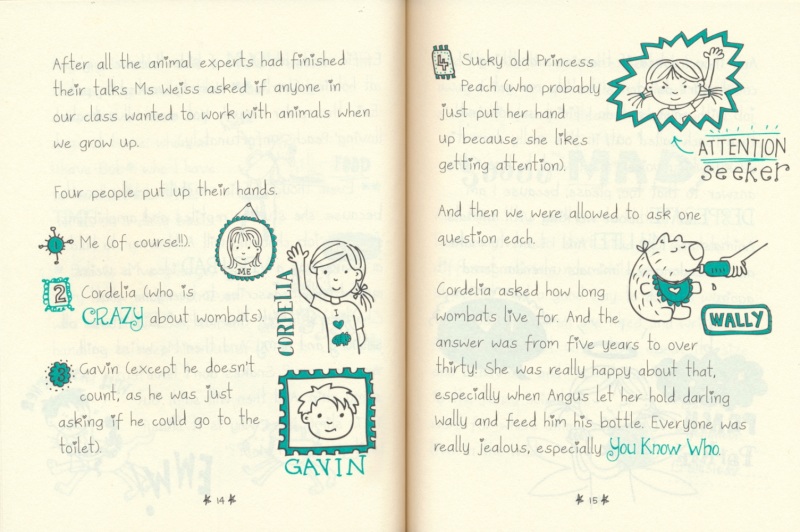 After all the animal experts had finished
their talks Ms Weiss asked if anyone in
our class wanted to work with animals when
we grow up.
Four people put up their hands.
1 Me (of course!!).
ME
2 Cordelia (who is
CRAZY about wombats).
CORDELIA
I
3 Gavin (except he doesn't
count, as he was just
asking if he could go to the
toilet).
GAVIN
14
4 Sucky old Princess
Peach (who probably
just put her hand
up because she likes
getting attention).
ATTENTION
seeker
And then we were allowed to ask one
question each.
Cordelia asked how long
wombats live for. And the
answer was from five years to over
thirty! She was really happy about that,
especially when Angus let her hold darling
Wally and feed him his bottle. Everyone was
really jealous, especially You Know Who.
WALLY
15